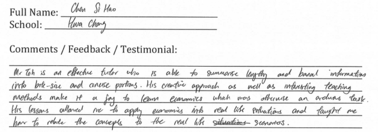 Full Name: Chen Si Hao
School: Hwa Chong
Comments / Feedback / Testimonial:
Mr Toh is an effective tutor who is able to summarise lengthy and banal information
into bite-size and concise portions. His creative approach as well as interesting teaching
methods make it a joy to learn economics which was otherwise an arduous task.
His lessons allowed me to apply economics into real life situations and taught me
how to relate the concepts to the real life scenarios.